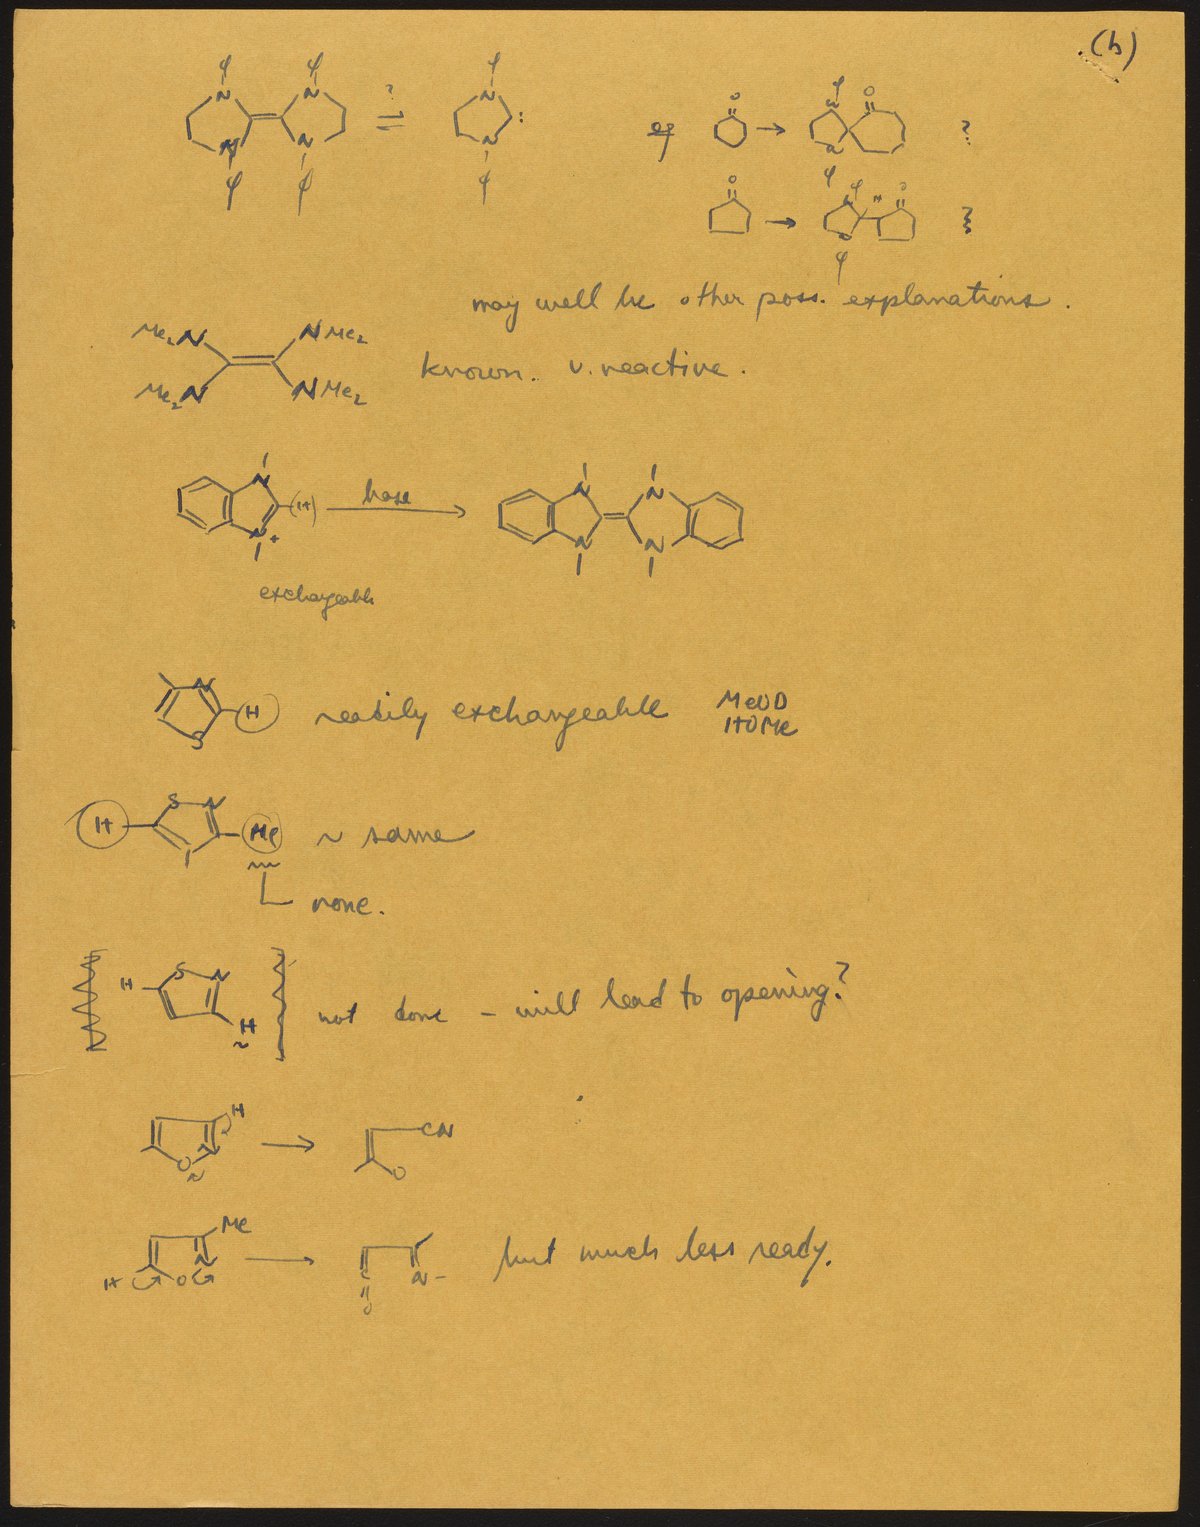 (h)
φ φ φ φ O O
N N ? N
N N N : eg → N ?
φ φ φ O φ φ O
→ N ?
φ
may well be other poss. explanations.
Me₂N NMe₂
known. v. reactive.
Me₂N NMe₂
N N N
(H) base
N+ N N
exchangeable
N
H readily exchangeable MeOD
S HOMe
S N
H Me ~ same
none.
S N
H H not done - will lead to opening?
H
CN
O N → O
Me
N → N- but much less ready.
H O O